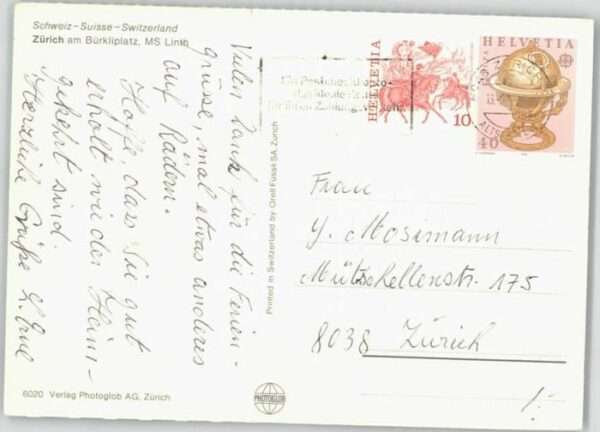 Schweiz-Suisse-Switzerland
Zürich am Bürkliplatz, MS Linth
Vielen Dank für die Ferien-
grüsse, mal etwas anderes
auf Rädern.
Hoffe, dass Sie gut
erholt wieder Heim-
gekehrt sind.
Herzliche Grüße
6020 Verlag Photoglob AG, Zürich
Printed in Switzerland by Orell Füssli SA, Zürich
PHOTOGLOB
HELVETIA
10
HELVETIA
40
Frau
Y. Mosimann
Mützchellenstr. 175
8038 Zürich